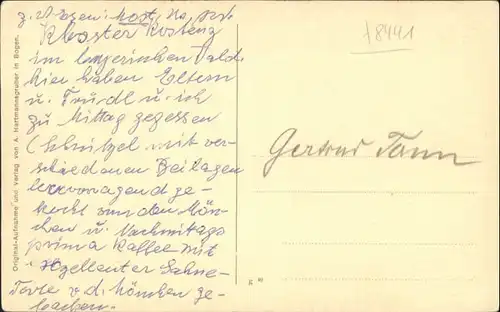 Kloster Kostenz
im bayerischen Wald.
hier haben Eltern
u. Trudl u. ich
zu Mittag gegessen
(Schnitzel mit ver-
schiedenen Beilagen
hervorragend ge-
kocht von den Mön-
chen u. Nachmittags
prima Kaffee mit
Sahne-
Torte v. d. Mönchen ge-
backen.
Gertrud Tann
†8441
Original-Aufnahme und Verlag von A. Hartmannsgruber in Bogen.